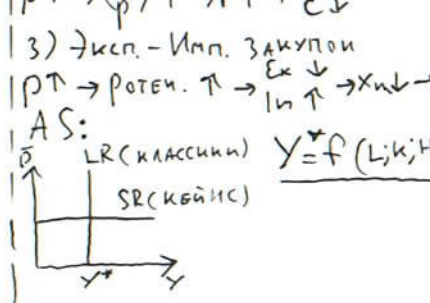 3) Эксп.-Имп. Закупок
P↑ → Ротен. ↑ → Ex ↓ In ↑ → Xn↓ →
AS:
P LR (классики) Y*=f(L;K;H
SR (Кейнс)
Y* Y